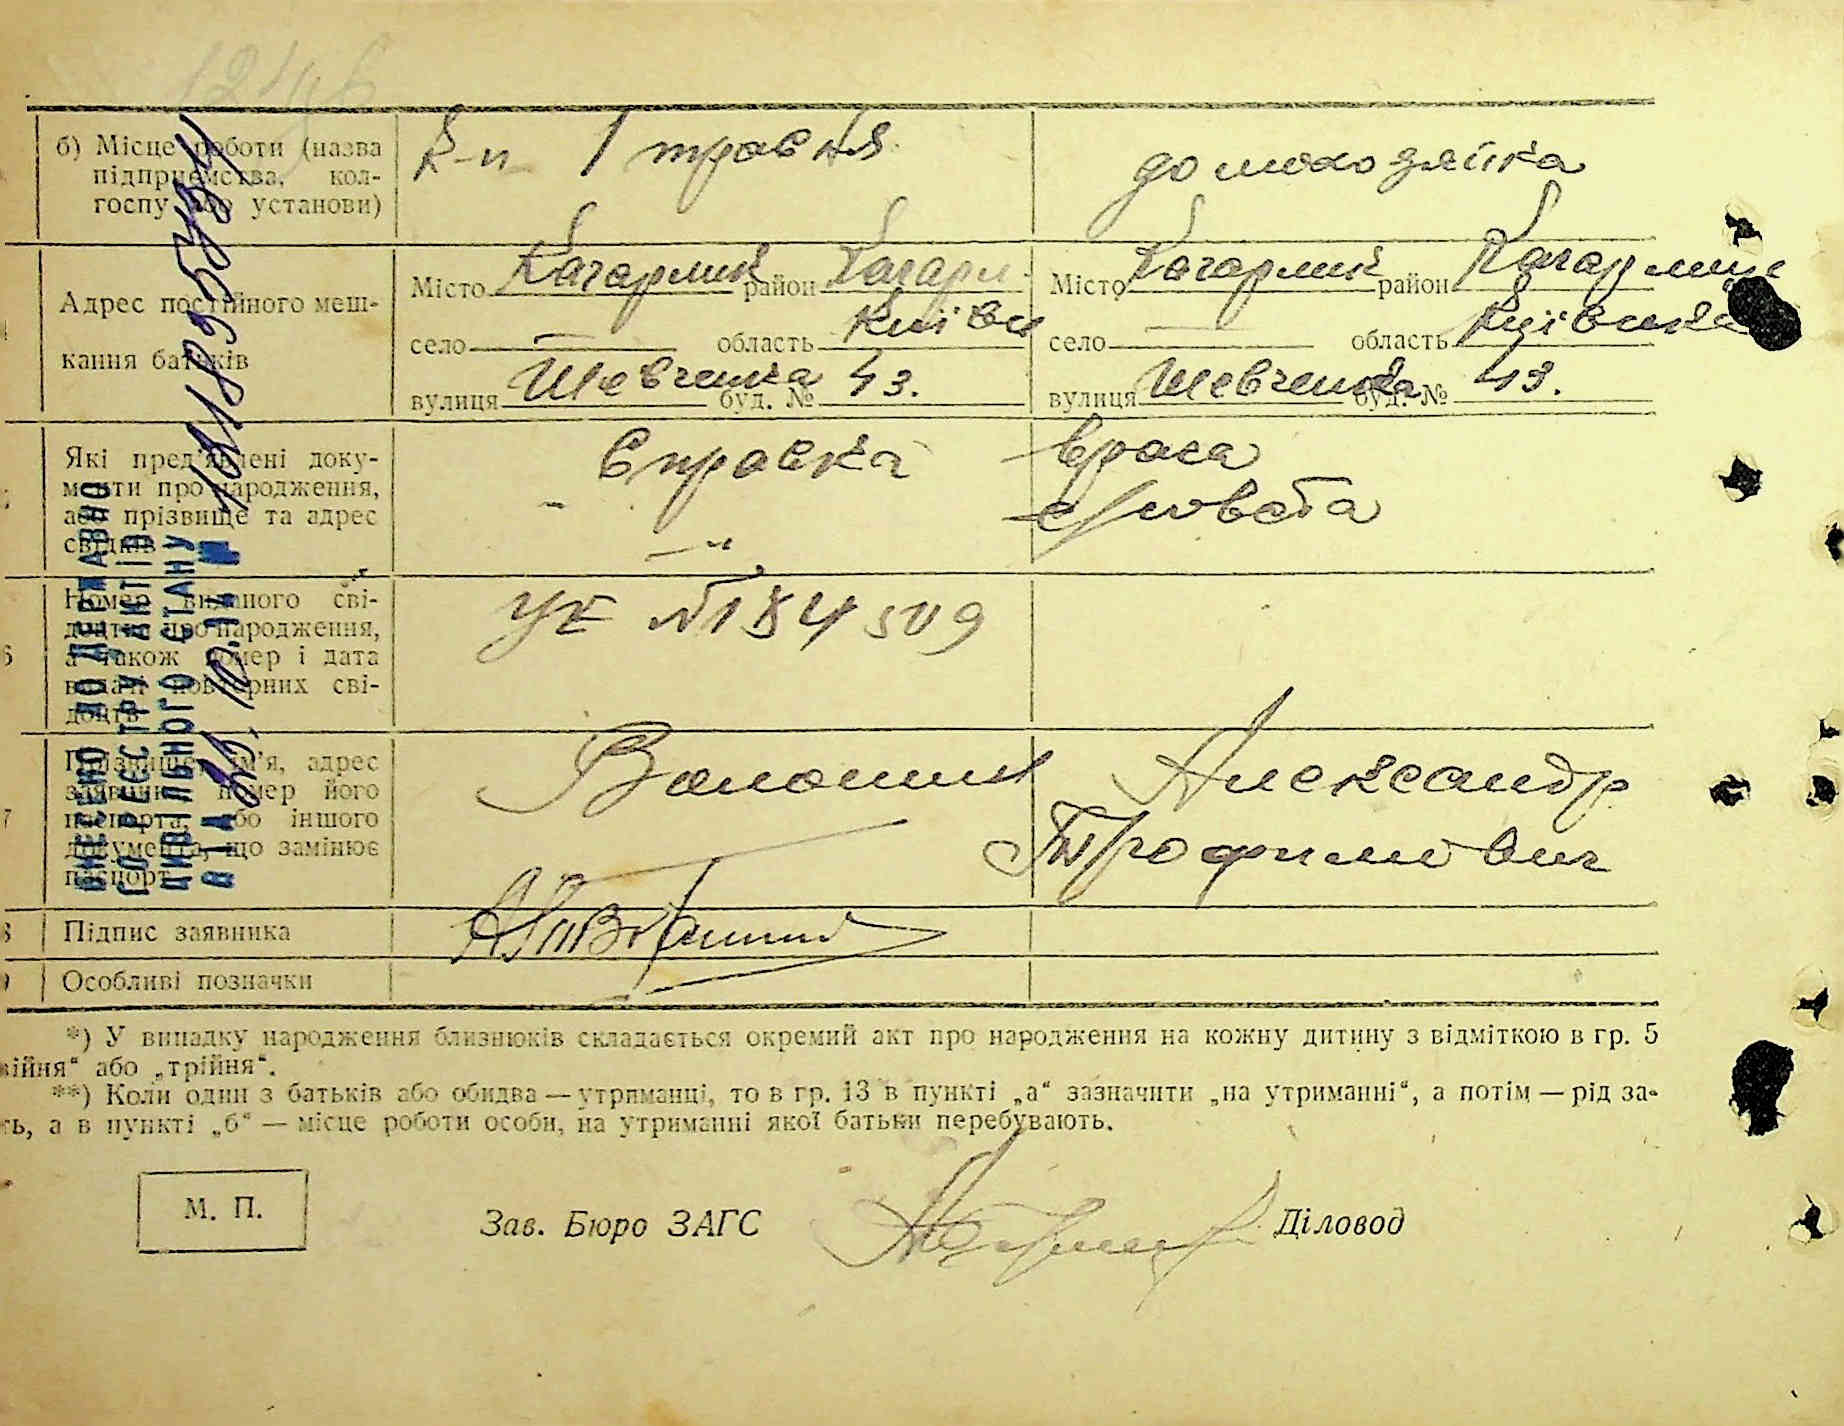 б) Місце роботи (назва
підприємства, кол-
госпу або установи)
К-п 1 травня
домохозяйка
Адрес постійного меш-
кання батьків
Місто Кагарлик район Кагарл.
село — область Київс
вулиця Шевченка буд. № 43.
Місто Кагарлик район Кагарлиц
село — область Київська
вулиця Шевченка буд. № 43.
Які пред'явлені доку-
менти про народження,
або прізвище та адрес
свідків
Справка врача
- " -
Номер виданого сві-
доцтва про народження,
а також номер і дата
видачі повторних сві-
доцтв
УЕ №184509
Прізвище, ім'я, адрес
заявника номер його
паспорта, або іншого
документа, що замінює
паспорт
Волошин Александр
Трофимович
Підпис заявника
Особливі позначки
*) У випадку народження близнюків складається окремий акт про народження на кожну дитину з відміткою в гр. 5
війня“ або „трійня“.
**) Коли один з батьків або обидва — утриманці, то в гр. 13 в пункті „а“ зазначити „на утриманні“, а потім — рід за-
ть, а в пункті „б“ — місце роботи особи, на утриманні якої батьки перебувають.
М. П.
Зав. Бюро ЗАГС
Діловод
ВНЕСЕНО ДО ДЕРЖАВНО
ГО РЕЄСТРУ АКТІВ
ЦИВІЛЬНОГО СТАНУ
ВІД
№